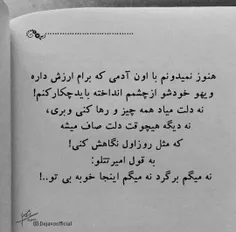 هنوز نمیدونم با اون آدمی که برام ارزش داره
ویهو خودشو ازچشمم انداخته بایدچکارکنم!
نه دلت میاد همه چیز و رها کنی وبری،
نه دیگه هیچوقت دلت صاف میشه
که مثل روزاول نگاهش کنی!
به قول امیرتتلو:
نه میگم برگرد نه میگم اینجا خوبه بی تو..!
@Dajavoofficial